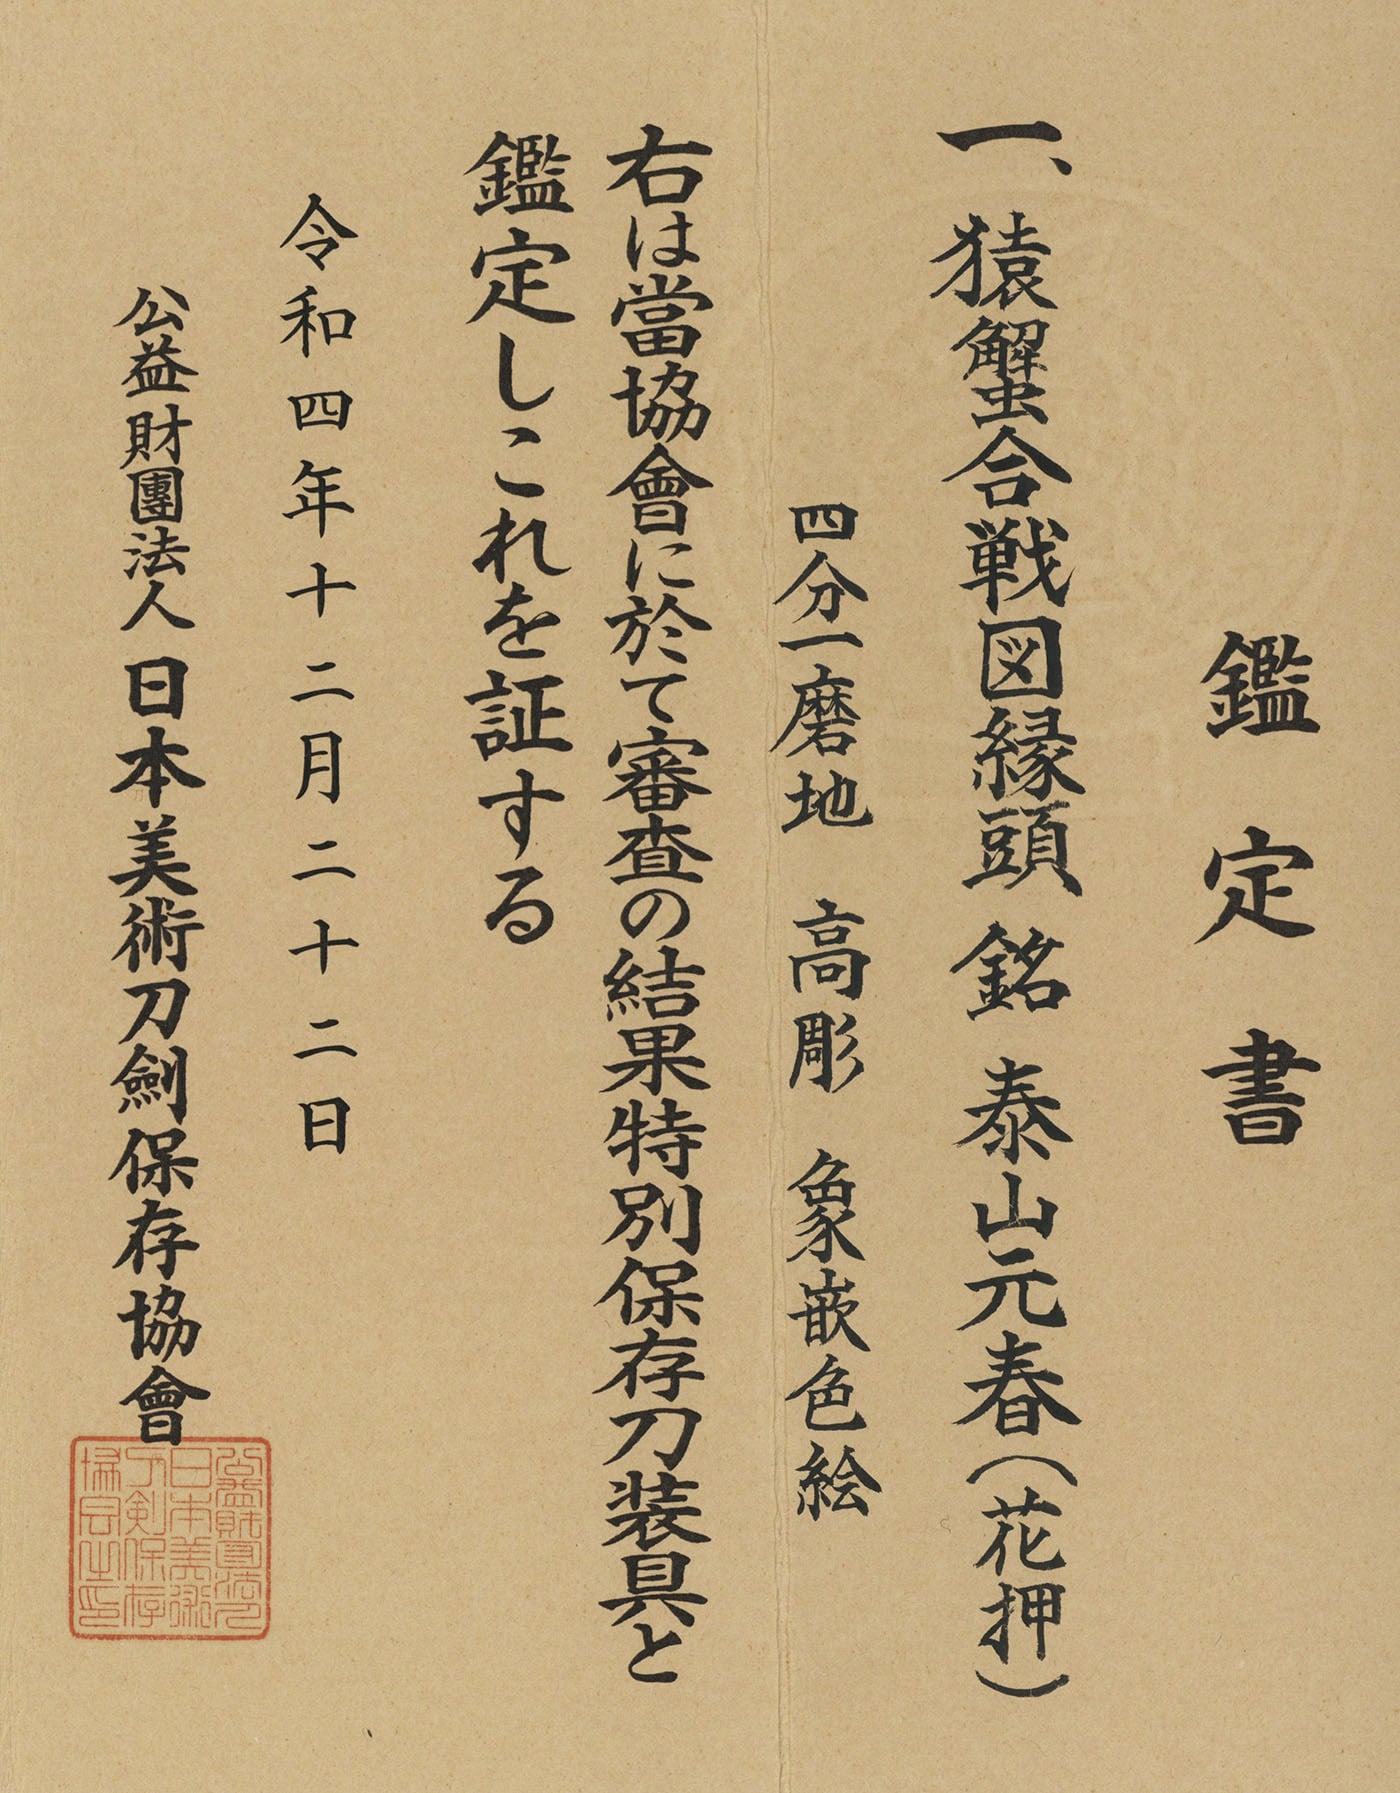 鑑定書
一、猿蟹合戦図縁頭 銘 泰山元春(花押)
四分一磨地 高彫 象嵌色絵
右は當協會に於て審査の結果特別保存刀装具と
鑑定しこれを証する
令和四年十二月二十二日
公益財團法人 日本美術刀劍保存協會
公益財団法人
日本美術
刀剣保存
協会之印